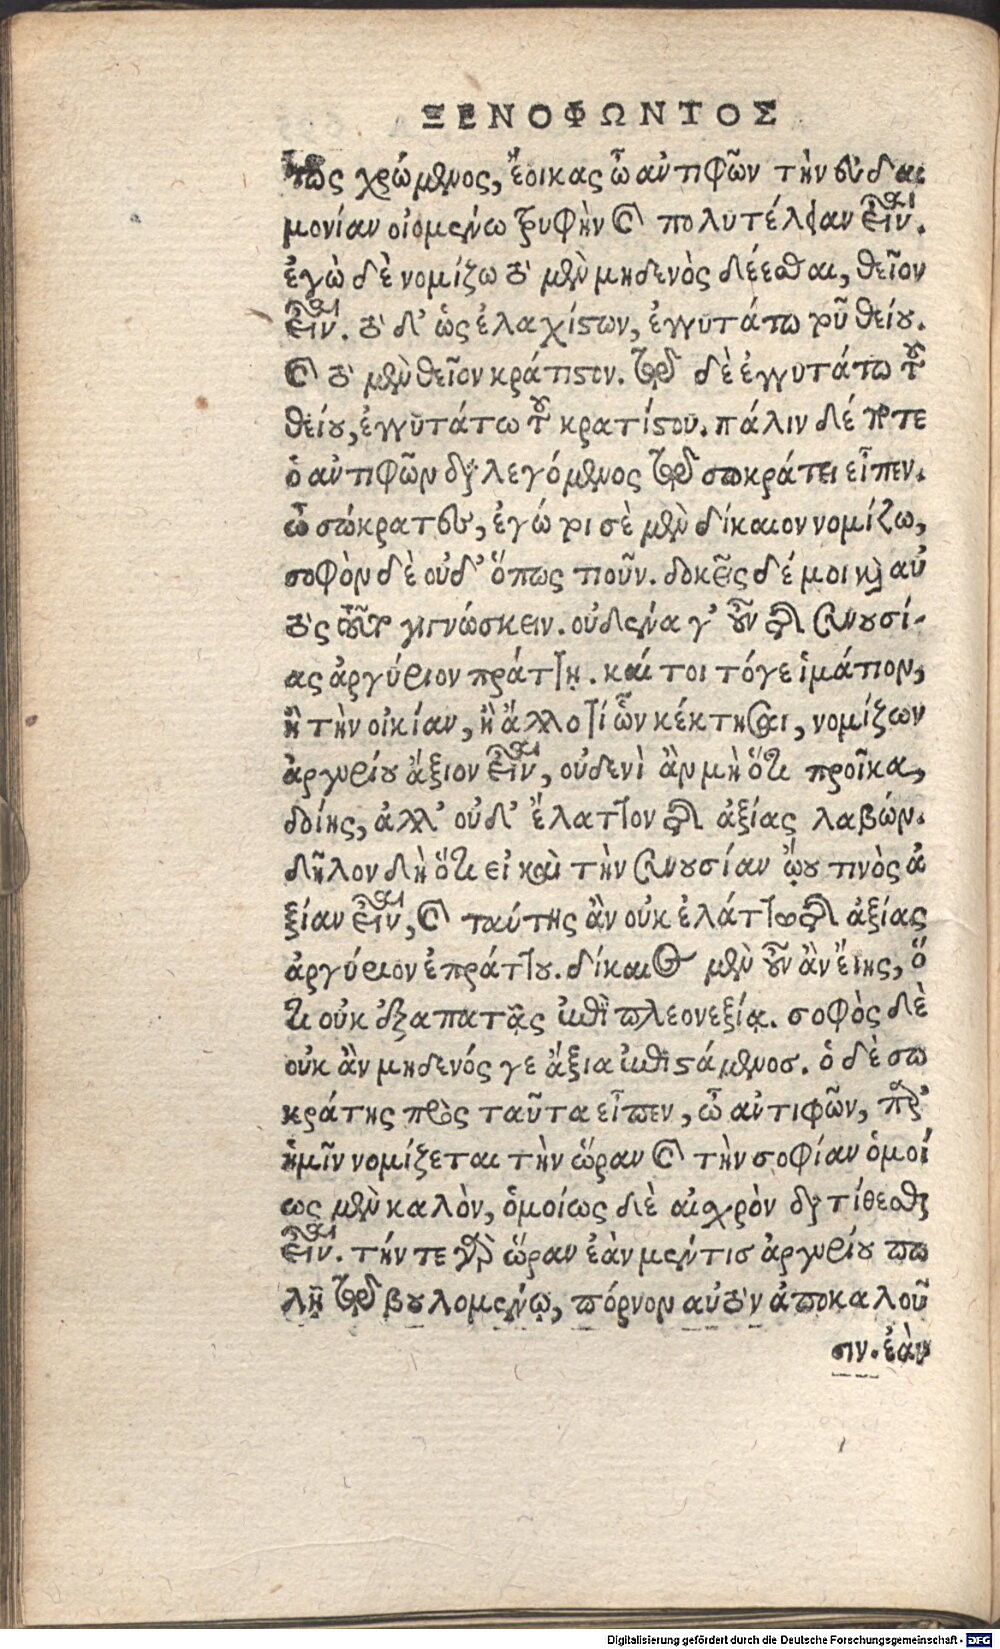 ΞΕΝΟΦΩΝΤΟΣ
τως χρώμενος, ἔοικας ὦ αὐτιφῶν τὴν εὐδαι
μονίαν οἰομένω τρυφὴν καὶ πολυτέλειαν εἶναι.
ἐγὼ δὲ νομίζω τὸ μὲν μηδενὸς δέεσθαι, θεῖον
εἶναι. τὸ δ' ὡς ἐλαχίστων, ἐγγυτάτω τοῦ θείου.
καὶ τὸ μὲν θεῖον κράτιστον. τὸ δὲ ἐγγυτάτω τοῦ
θείου, ἐγγυτάτω τοῦ κρατίστου. πάλιν δέ ποτε
ὁ αὐτιφῶν διαλεγόμενος τῷ σωκράτει εἶπεν.
ὦ σώκρατες, ἐγώ τοι σὲ μὲν δίκαιον νομίζω,
σοφὸν δὲ οὐδ' ὅπως τιοῦν. δοκεῖς δέ μοι καὶ αὐ
τὸς τοῦτο γιγνώσκειν. οὐδένα γ' οὖν τῆς συνουσί-
ας ἀργύριον πράττῃ. καί τοι τόγε ἱμάτιον,
ἢ τὴν οἰκίαν, ἢ ἄλλο τί ὧν κέκτησαι, νομίζων
ἀργυρίου ἄξιον εἶναι, οὐδενὶ ἂν μὴ ὅτι προῖκα,
δοίης, ἀλλ' οὐδ' ἔλαττον τῆς ἀξίας λαβών.
δῆλον δὴ ὅτι εἰ καὶ τὴν συνουσίαν ᾤου τινὸς ἀ
ξίαν εἶναι, καὶ ταύτης ἂν οὐκ ἐλάττω τῆς ἀξίας
ἀργύριον ἐπράττου. δίκαιος μὲν οὖν ἂν εἴης, ὅ
τι οὐκ ἐξαπατᾷς ἐπὶ πλεονεξίᾳ. σοφὸς δὲ
οὐκ ἂν μηδενός γε ἄξια ἐπιστάμενοσ. ὁ δὲ σω
κράτης πρὸς ταῦτα εἶπεν, ὦ αὐτιφῶν, παρ'
ἡμῖν νομίζεται τὴν ὥραν καὶ τὴν σοφίαν ὁμοί
ως μὲν καλὸν, ὁμοίως δὲ αἰχρὸν διατίθεσθαι
εἶναι. τήν τε γὰρ ὥραν ἐὰν μέν τισ ἀργυρίου πω
λῇ τῷ βουλομένῳ, πόρνον αὐτὸν ἀποκαλοῦ
σιν. ἐὰν
Digitalisierung gefördert durch die Deutsche Forschungsgemeinschaft - DFG